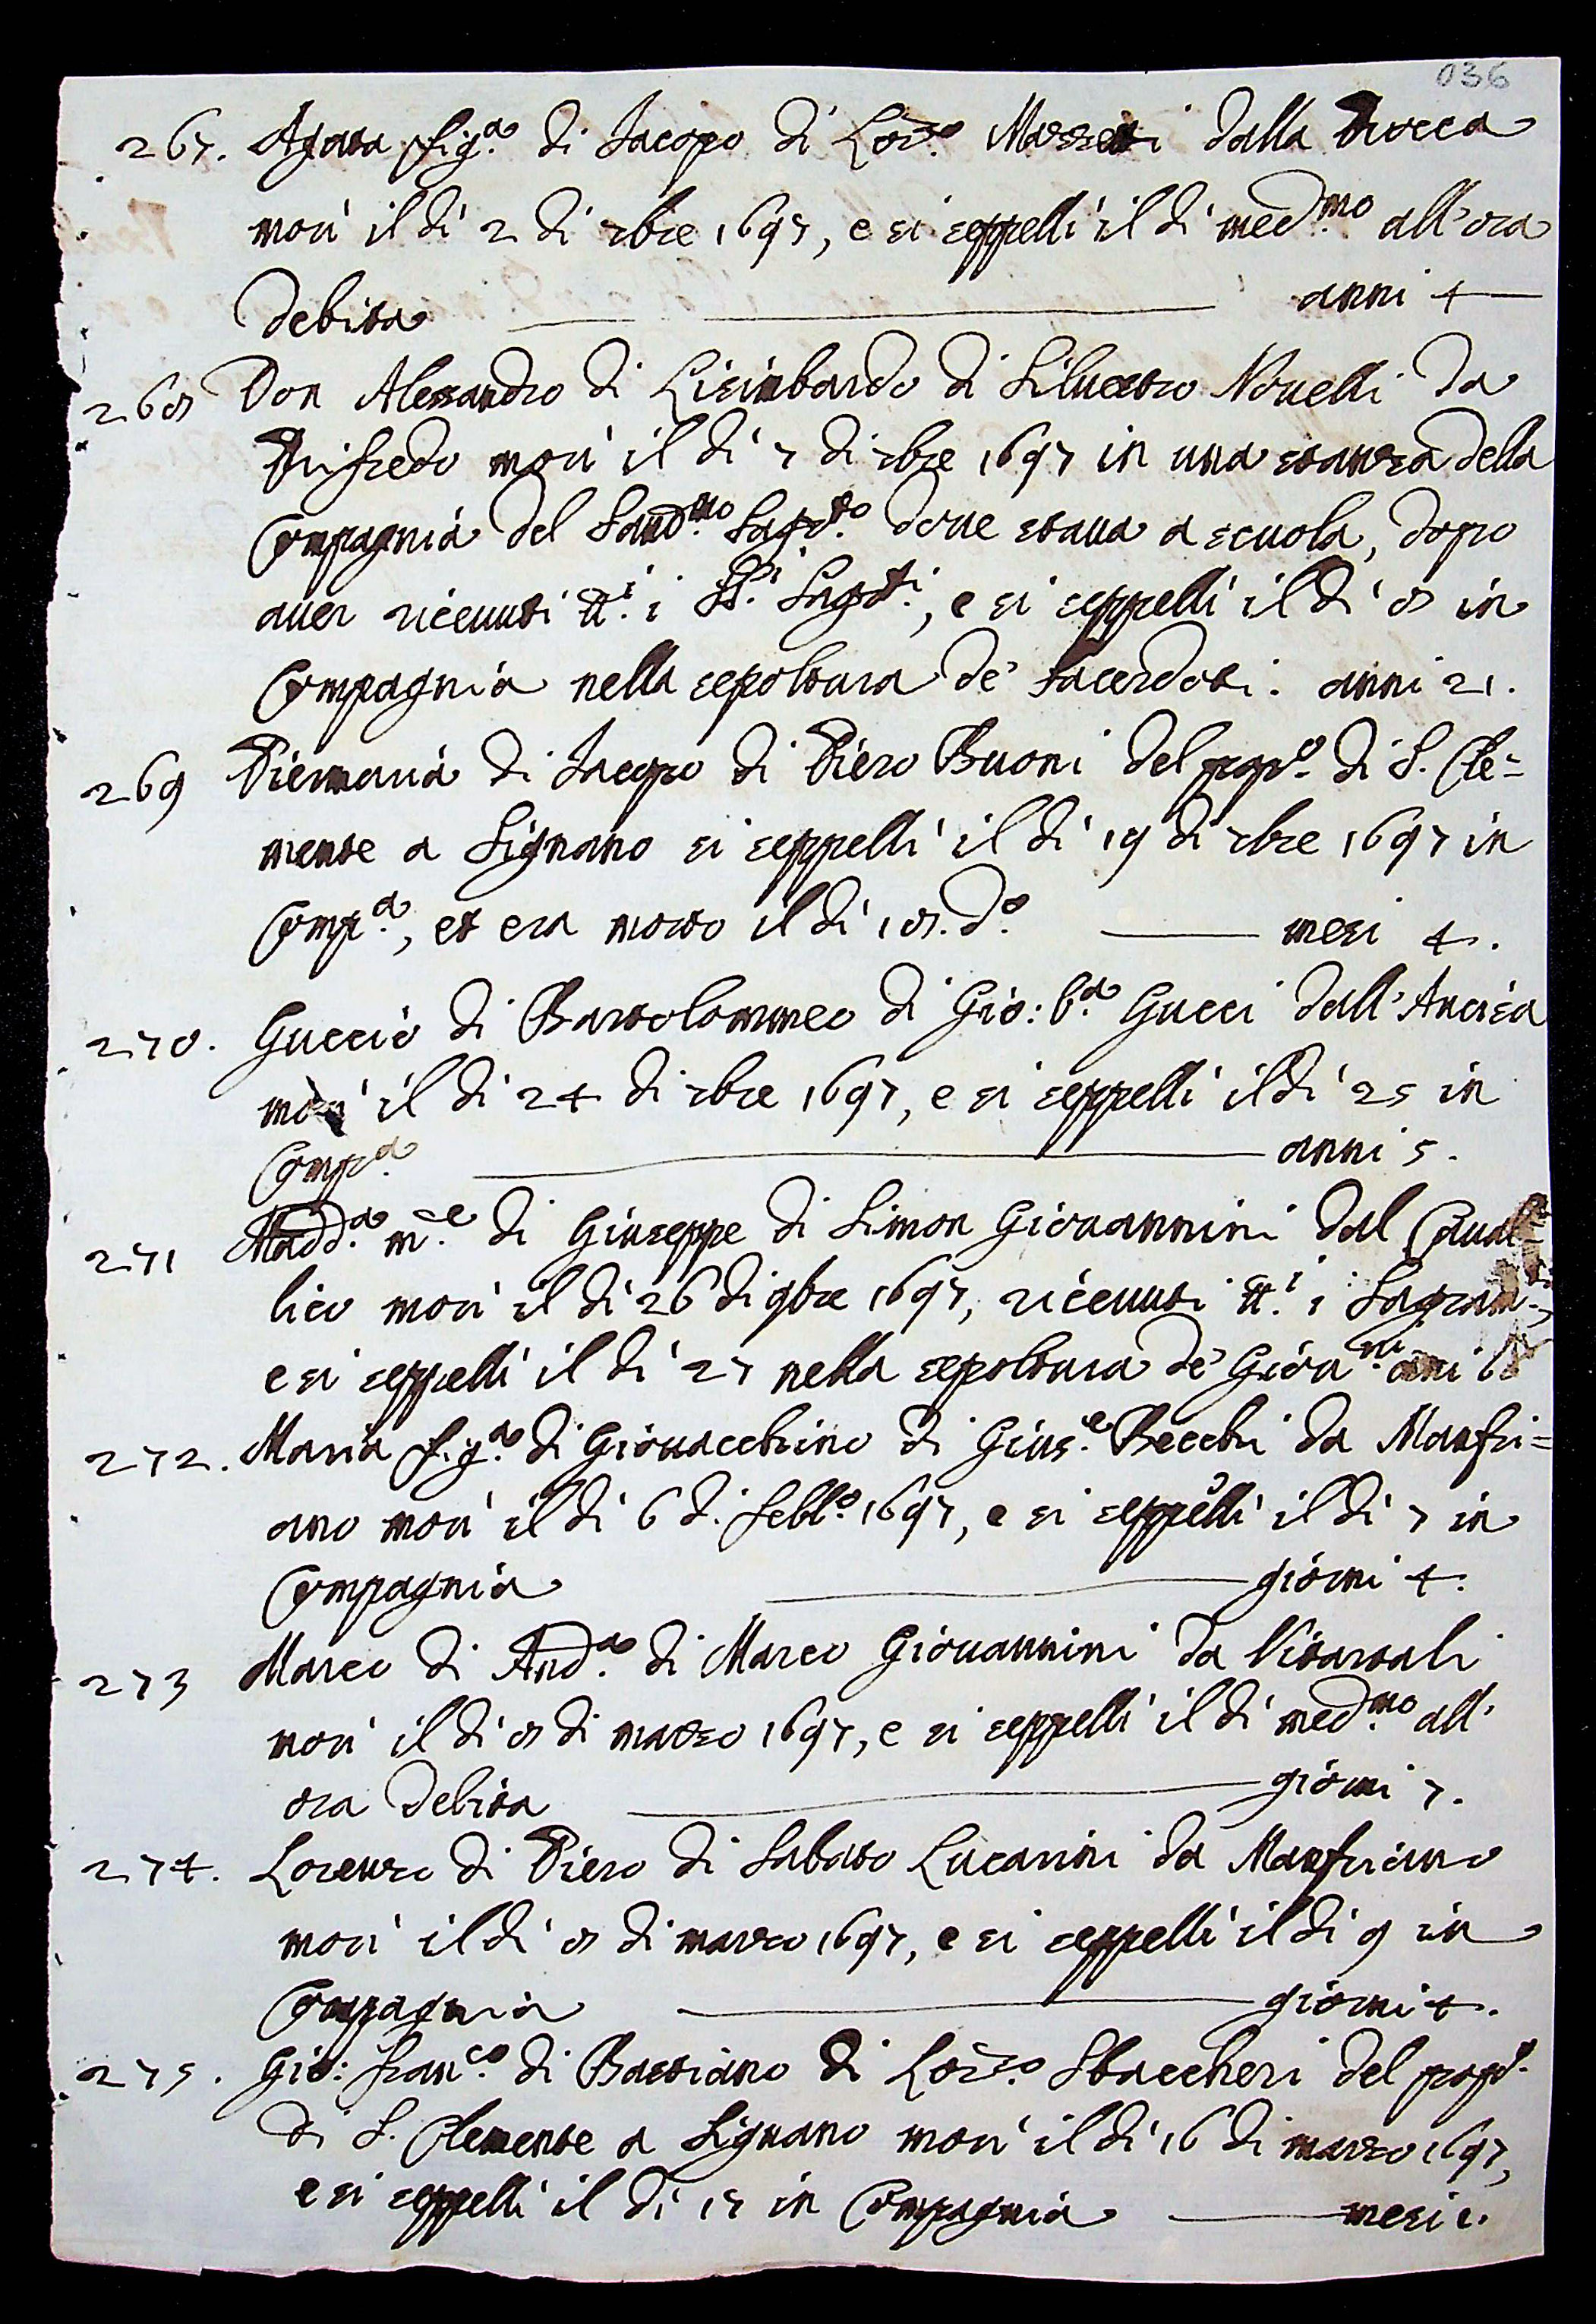 036
267. Agata fig.a di Jacopo di Lor.zo Mazzetti dalla Rocca
morì il dì 2 di 7bre 1697, e si seppellì il dì med.mo all'ora
debita anni 4
268 Don Alessandro di Lisimbardo di Silvestro Novelli da
Rifredo morì il dì 7 di 7bre 1697 in una stanza della
Compagnia del Sant.mo Sagr.to dove stava a scuola, dopo
aver ricevuti tt.i i SS.i Sagr.ti, e si seppellì il dì 8 in
Compagnia nella sepoltura de' Sacerdoti. anni 21.
269 Piermaria di Jacopo di Piero Buoni del pop.o di S. Cle=
mente a Signano si seppellì il dì 19 di 7bre 1697 in
Comp.a, et era morto il dì 18. d.o mesi 4.
270. Guccio di Bartolommeo di Gio: b.a Gucci dall'Ancisa
morì il dì 24 di 7bre 1697, e si seppellì il dì 25 in
Comp.a anni 5.
271 Madd.a m.e di Giuseppe di Simon Giovannini dal
lico morì il dì 26 di 9bre 1697, ricevuti tt.i i Sagram.
e si seppellì il dì 27 nella sepoltura de' Giova.ni anni
272. Maria fig.a di Giovacchino di Gius.e Becchi da Manfri=
ano morì il dì 6 di febb.o 1697, e si seppellì il dì 7 in
Compagnia giorni 4.
273 Marco di And.a di Marco Giovannini da Vitartali
morì il dì 8 di marzo 1697, e si seppellì il dì med.mo all'
ora debita giorni 7.
274. Lorenzo di Piero di Sabato Lucarini da Manfriano
morì il dì 8 di marzo 1697, e si seppellì il dì 9 in
Compagnia giorni 4.
275. Gio: Fran.co di Bastiano di Lor.zo Sbaccheri del pop.o
di S. Clemente a Signano morì il dì 16 di marzo 1697,
e si seppellì il dì 17 in Compagnia mesi 1.